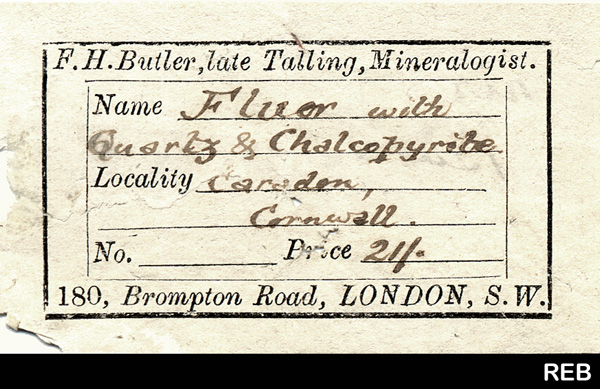 F. H. Butler, late Talling, Mineralogist.
Name Fluor with
Quartz & Chalcopyrite
Locality Caradon,
Cornwall.
No. Price 21/-
180, Brompton Road, LONDON, S. W.
REB